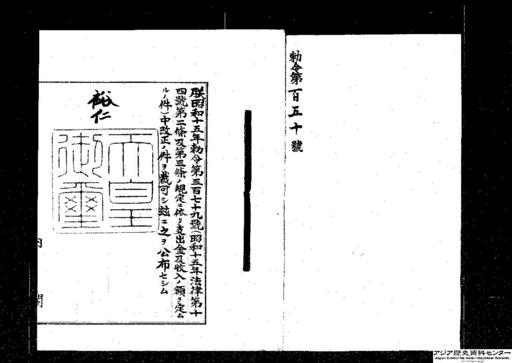 勅令第百五十號
朕昭和十五年勅令第三百七十九號(昭和十五年法律第十
四號第二條及第三條ノ規定ニ依リ支出金及收入ノ額ヲ定ム
ルノ件)中改正ノ件ヲ裁可シ玆ニ之ヲ公布セシム
裕仁
天皇
御璽
内閣
アジア歴史資料センター
Japan Center for Asian Historical Records